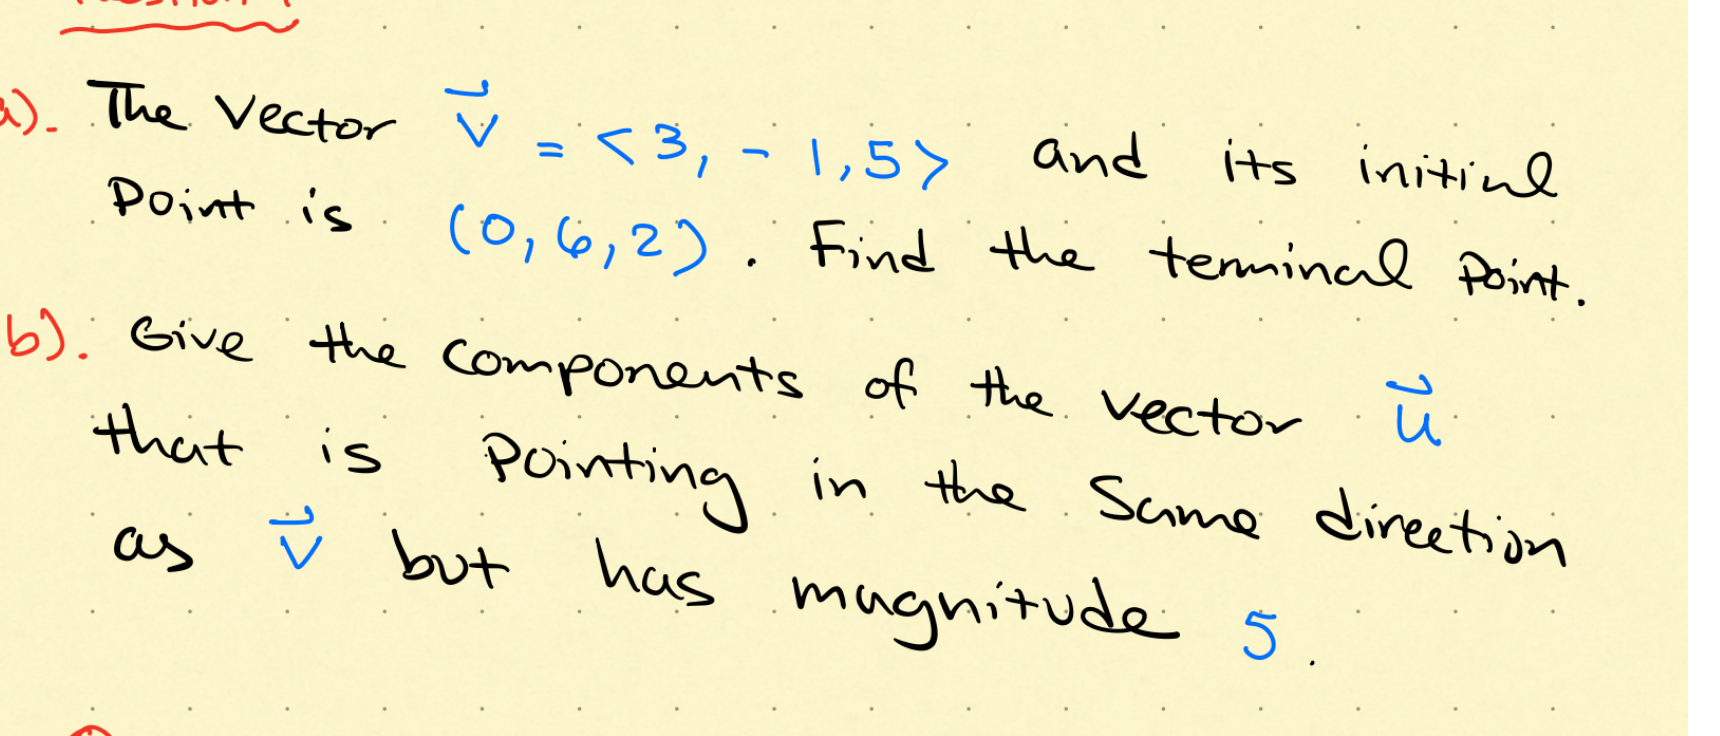 a). The vector v⃗ = <3, -1,5> and its initial
Point is (0,6,2). Find the terminal Point.
b). Give the components of the vector u⃗
that is pointing in the same direction
as v⃗ but has magnitude 5.